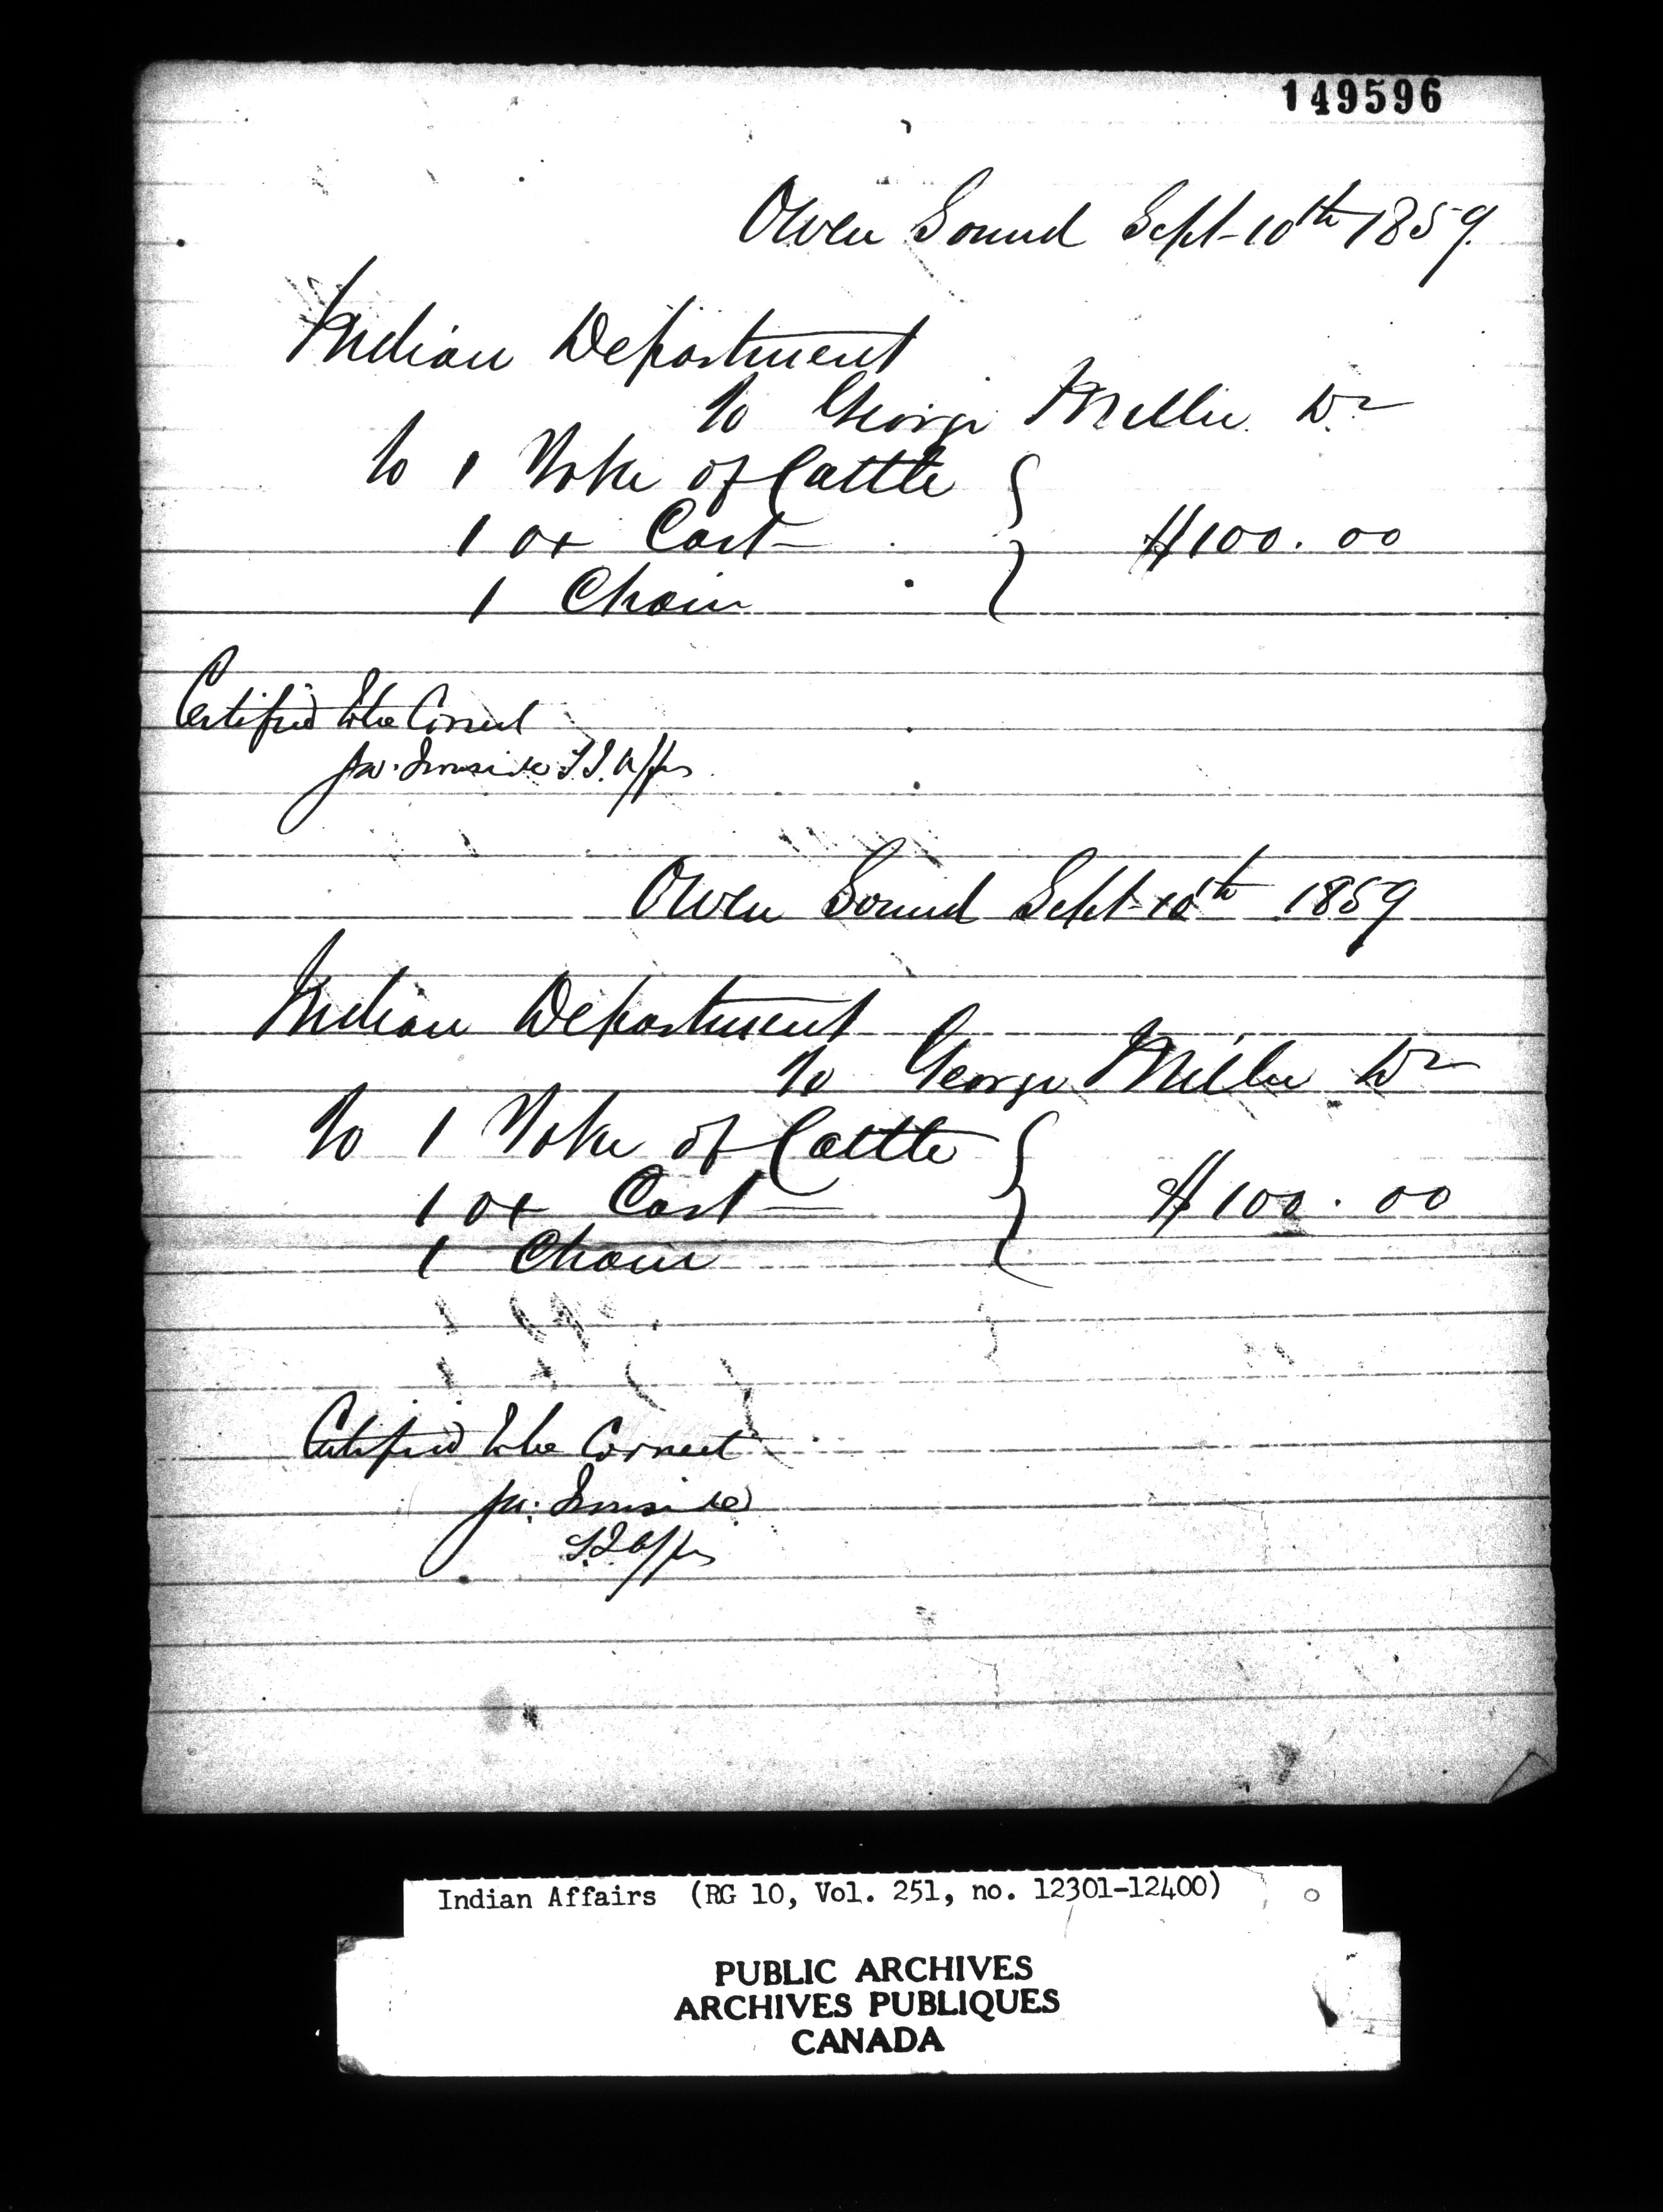 149596
Owen Sound Sept 10th 1859.
Indian Department
To George Miller Dr
To 1 Yoke of Cattle
1 ox Cart
1 Chain
$100.00
Certified to be Correct
Ironside S.I. Affrs
Owen Sound Sept 10th 1859
Indian Department
To George Miller Dr
To 1 Yoke of Cattle
1 ox Cart
1 Chain
$100.00
Certified to be Correct
Ironside
S.I. Affrs
Indian Affairs (RG 10, Vol. 251, no. 12301-12400)
PUBLIC ARCHIVES
ARCHIVES PUBLIQUES
CANADA